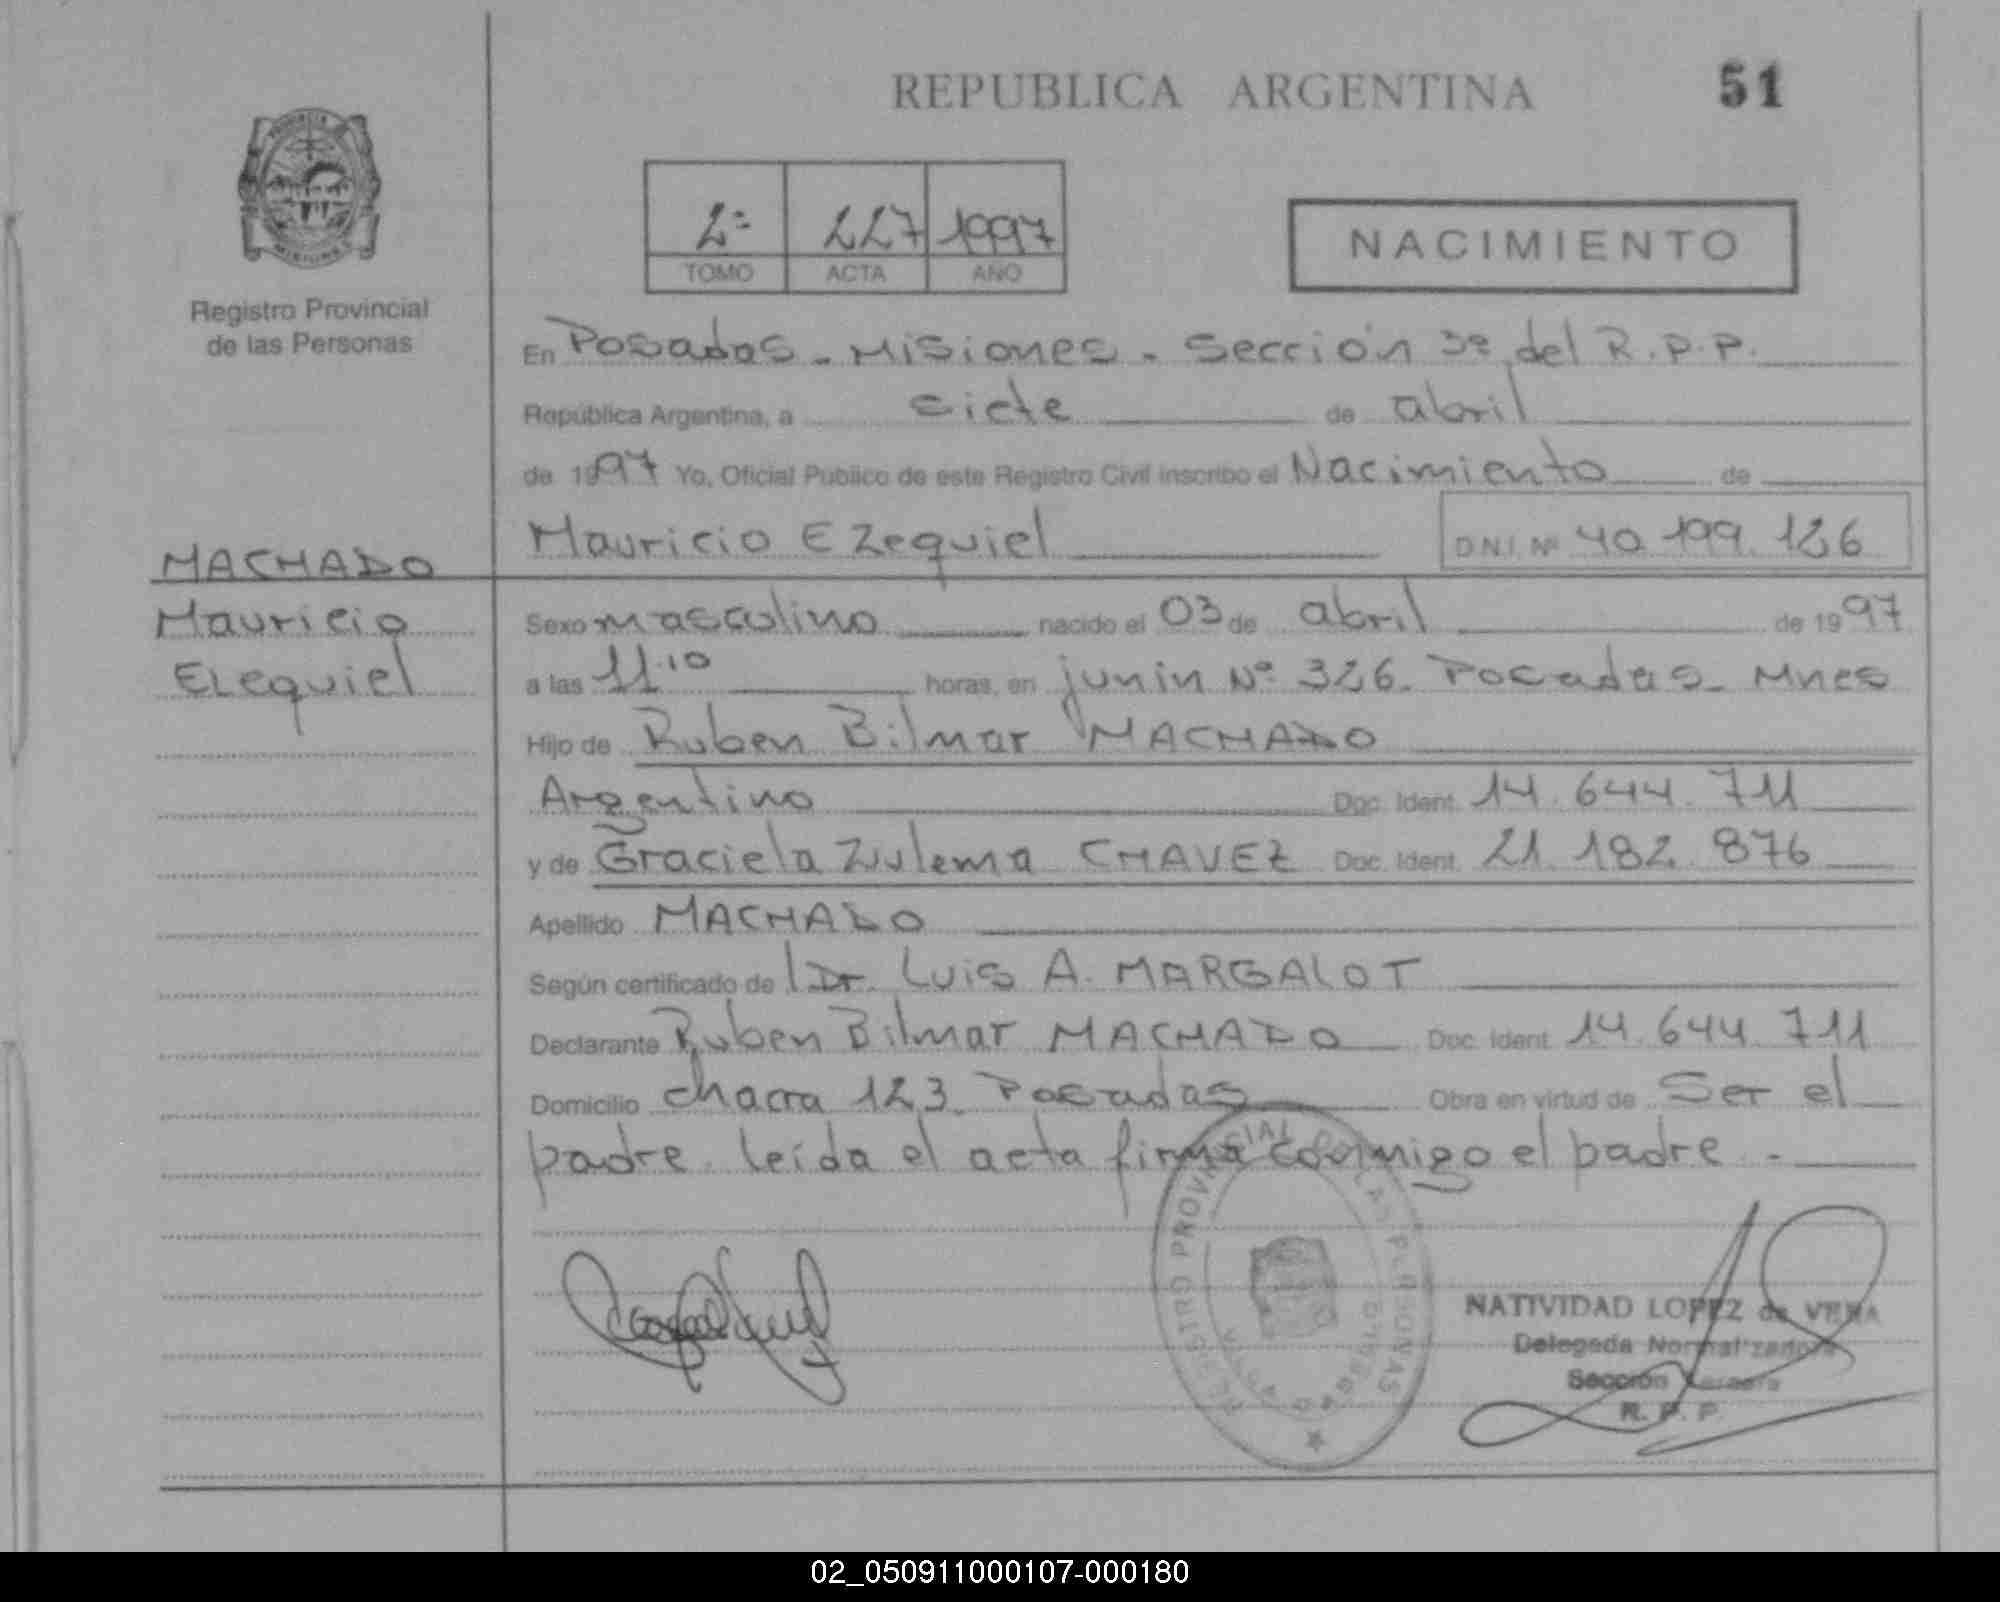 REPUBLICA ARGENTINA
51
2º 227 1997
TOMO ACTA AÑO
NACIMIENTO
Registro Provincial
de las Personas
En Posadas - Misiones - Sección 3º del R.P.P.
República Argentina, a siete de abril
de 1997 Yo, Oficial Público de este Registro Civil inscribo el Nacimiento de
Mauricio Ezequiel D.N.I. Nº 40.199.126
MACHADO
Mauricio
Ezequiel
Sexo masculino nacido el 03 de abril de 1997
a las 11.10 horas, en junin Nº 326. Posadas - Mnes
Hijo de Ruben Bilmar MACHADO
Argentino Doc. Ident. 14.644.711
y de Graciela Zulema CHAVEZ Doc. Ident. 21.182.876
Apellido MACHADO
Según certificado de Dr. Luis A. MARGALOT
Declarante Ruben Bilmar MACHADO Doc. Ident. 14.644.711
Domicilio chacra 123. Posadas Obra en virtud de Ser el
padre. leída el acta firma conmigo el padre.-
REGISTRO PROVINCIAL DE LAS PERSONAS
NATIVIDAD LOPEZ de VERA
Delegada Normalizadora
Sección Tercera
R. P. P.
02_050911000107-000180